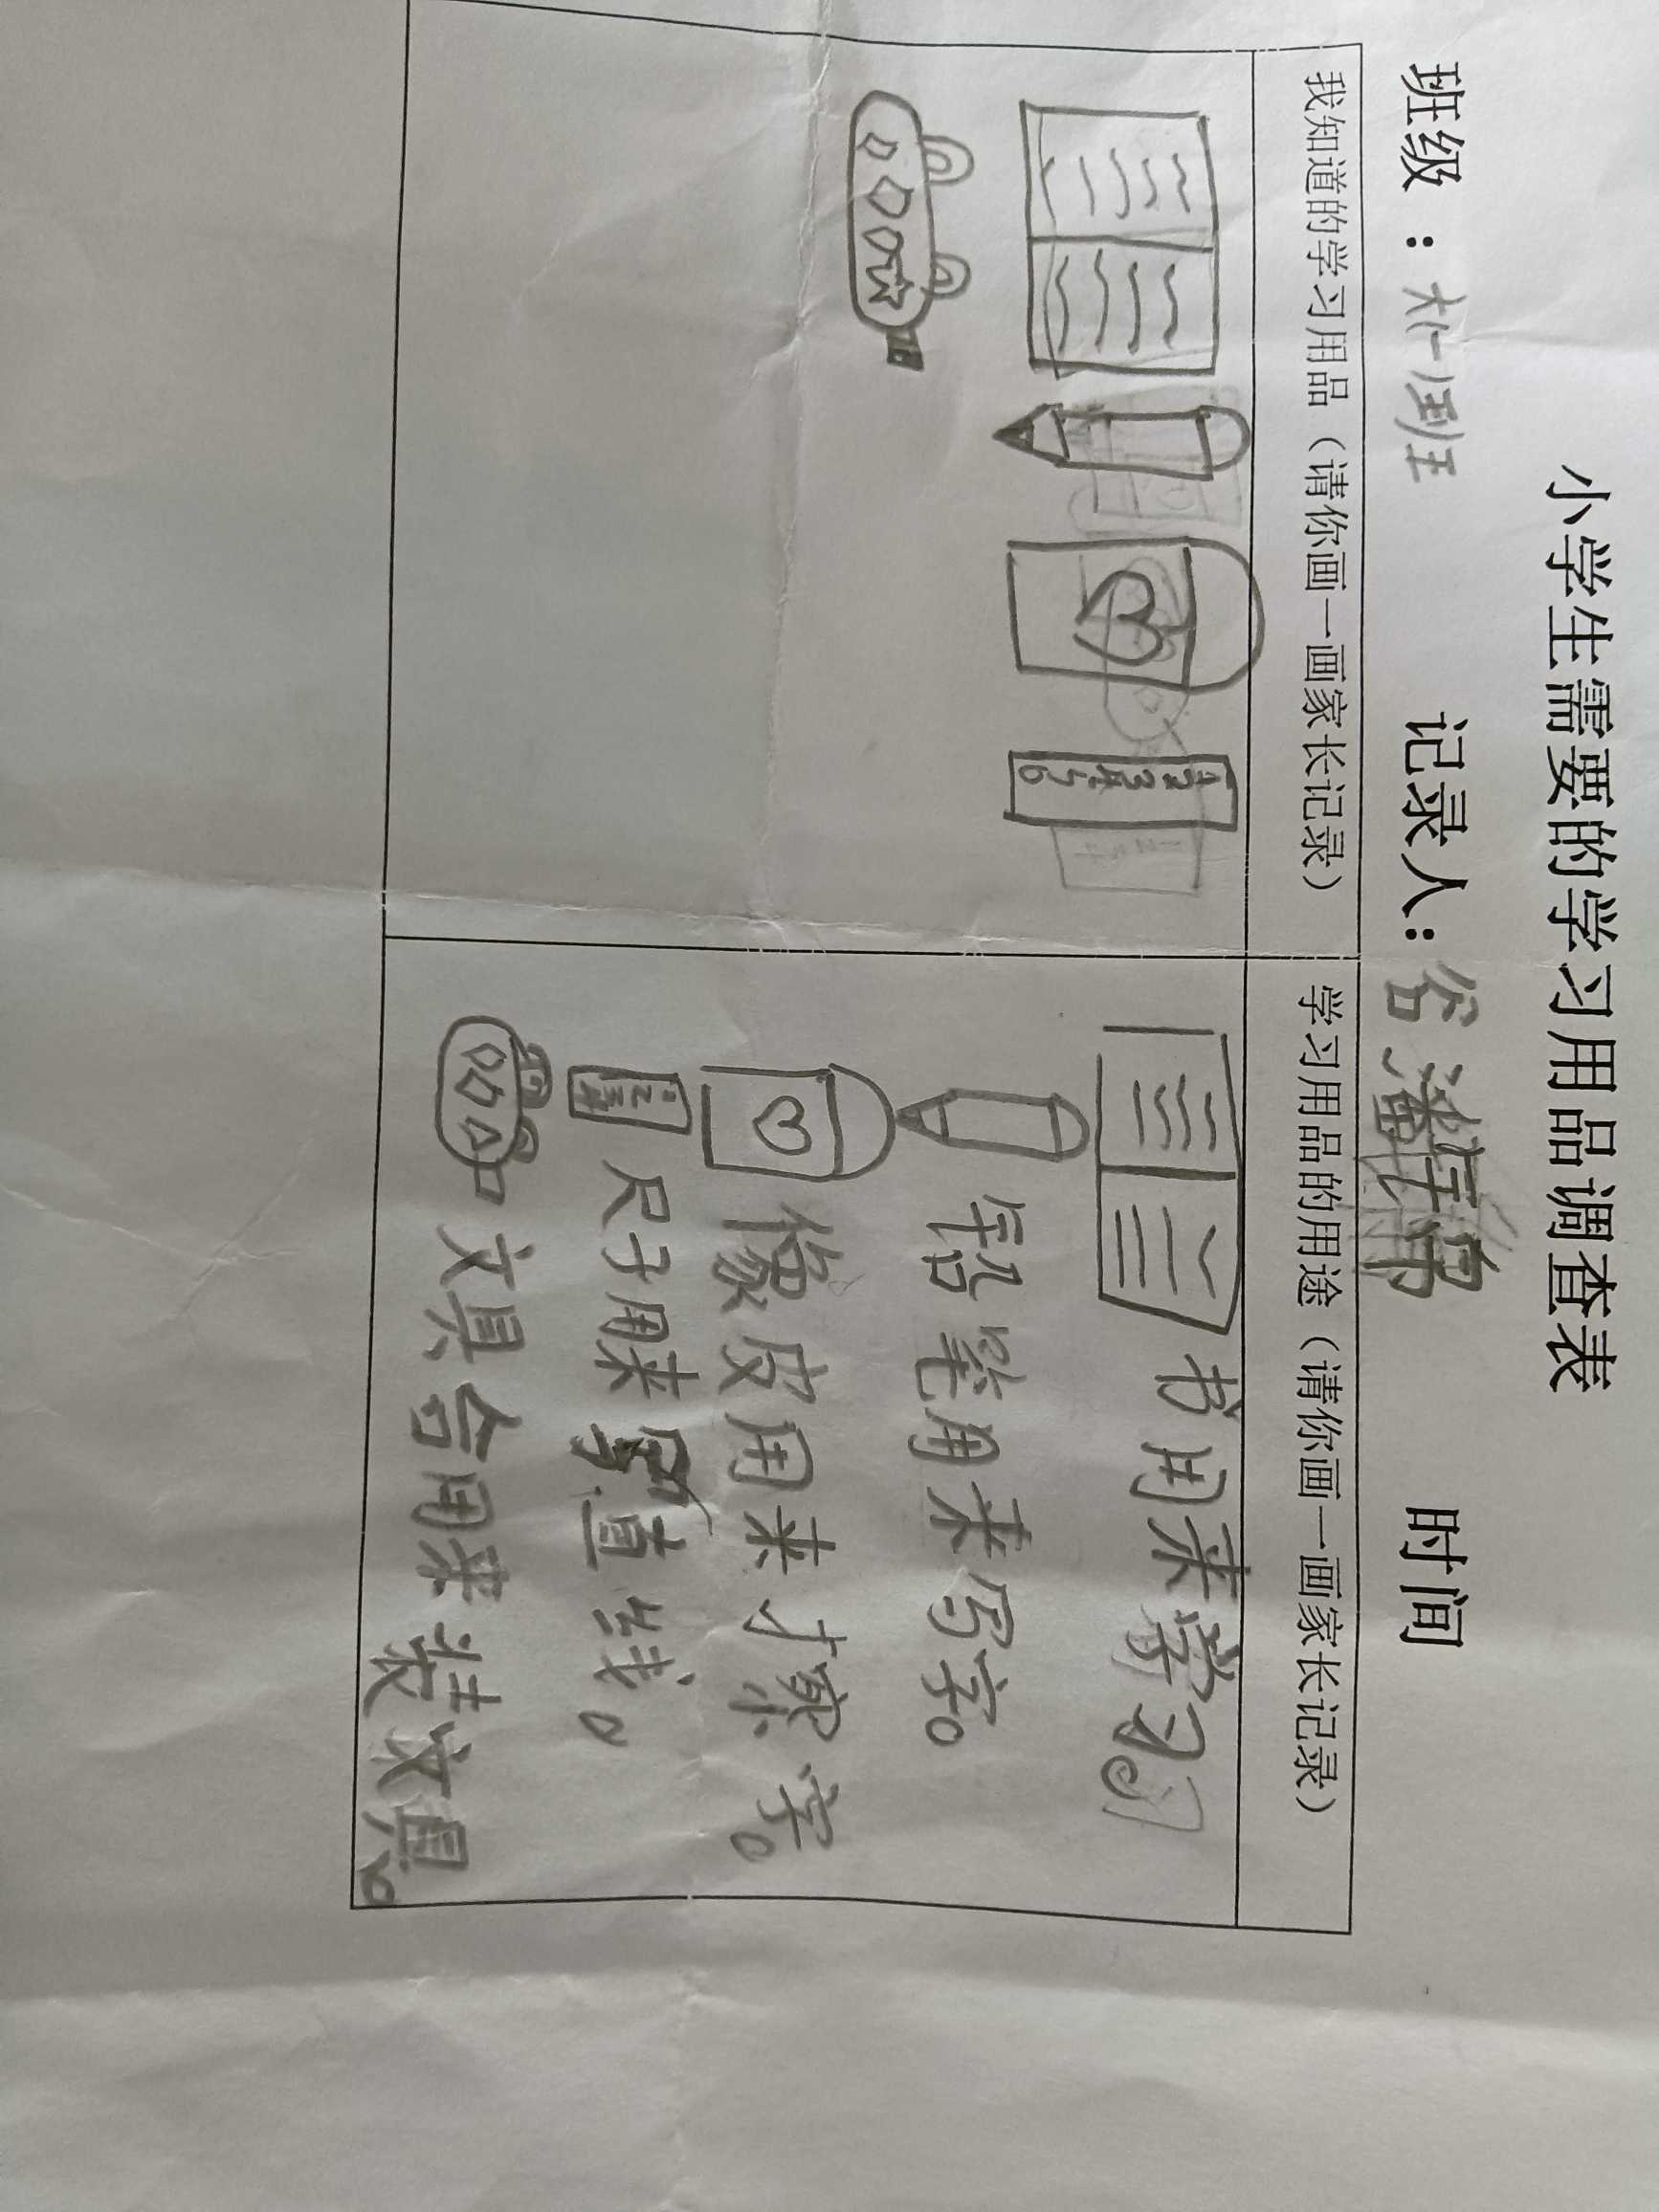 小学生需要的学习用品调查表
班级：大一班 记录人： 时间
我知道的学习用品（请你画一画家长记录）
学习用品的用途（请你画一画家长记录）
1 2 3 4 5 6
书用来学习。
铅笔用来写字。
像皮用来擦字。
尺子用来 直线。
文具合用来装文具。